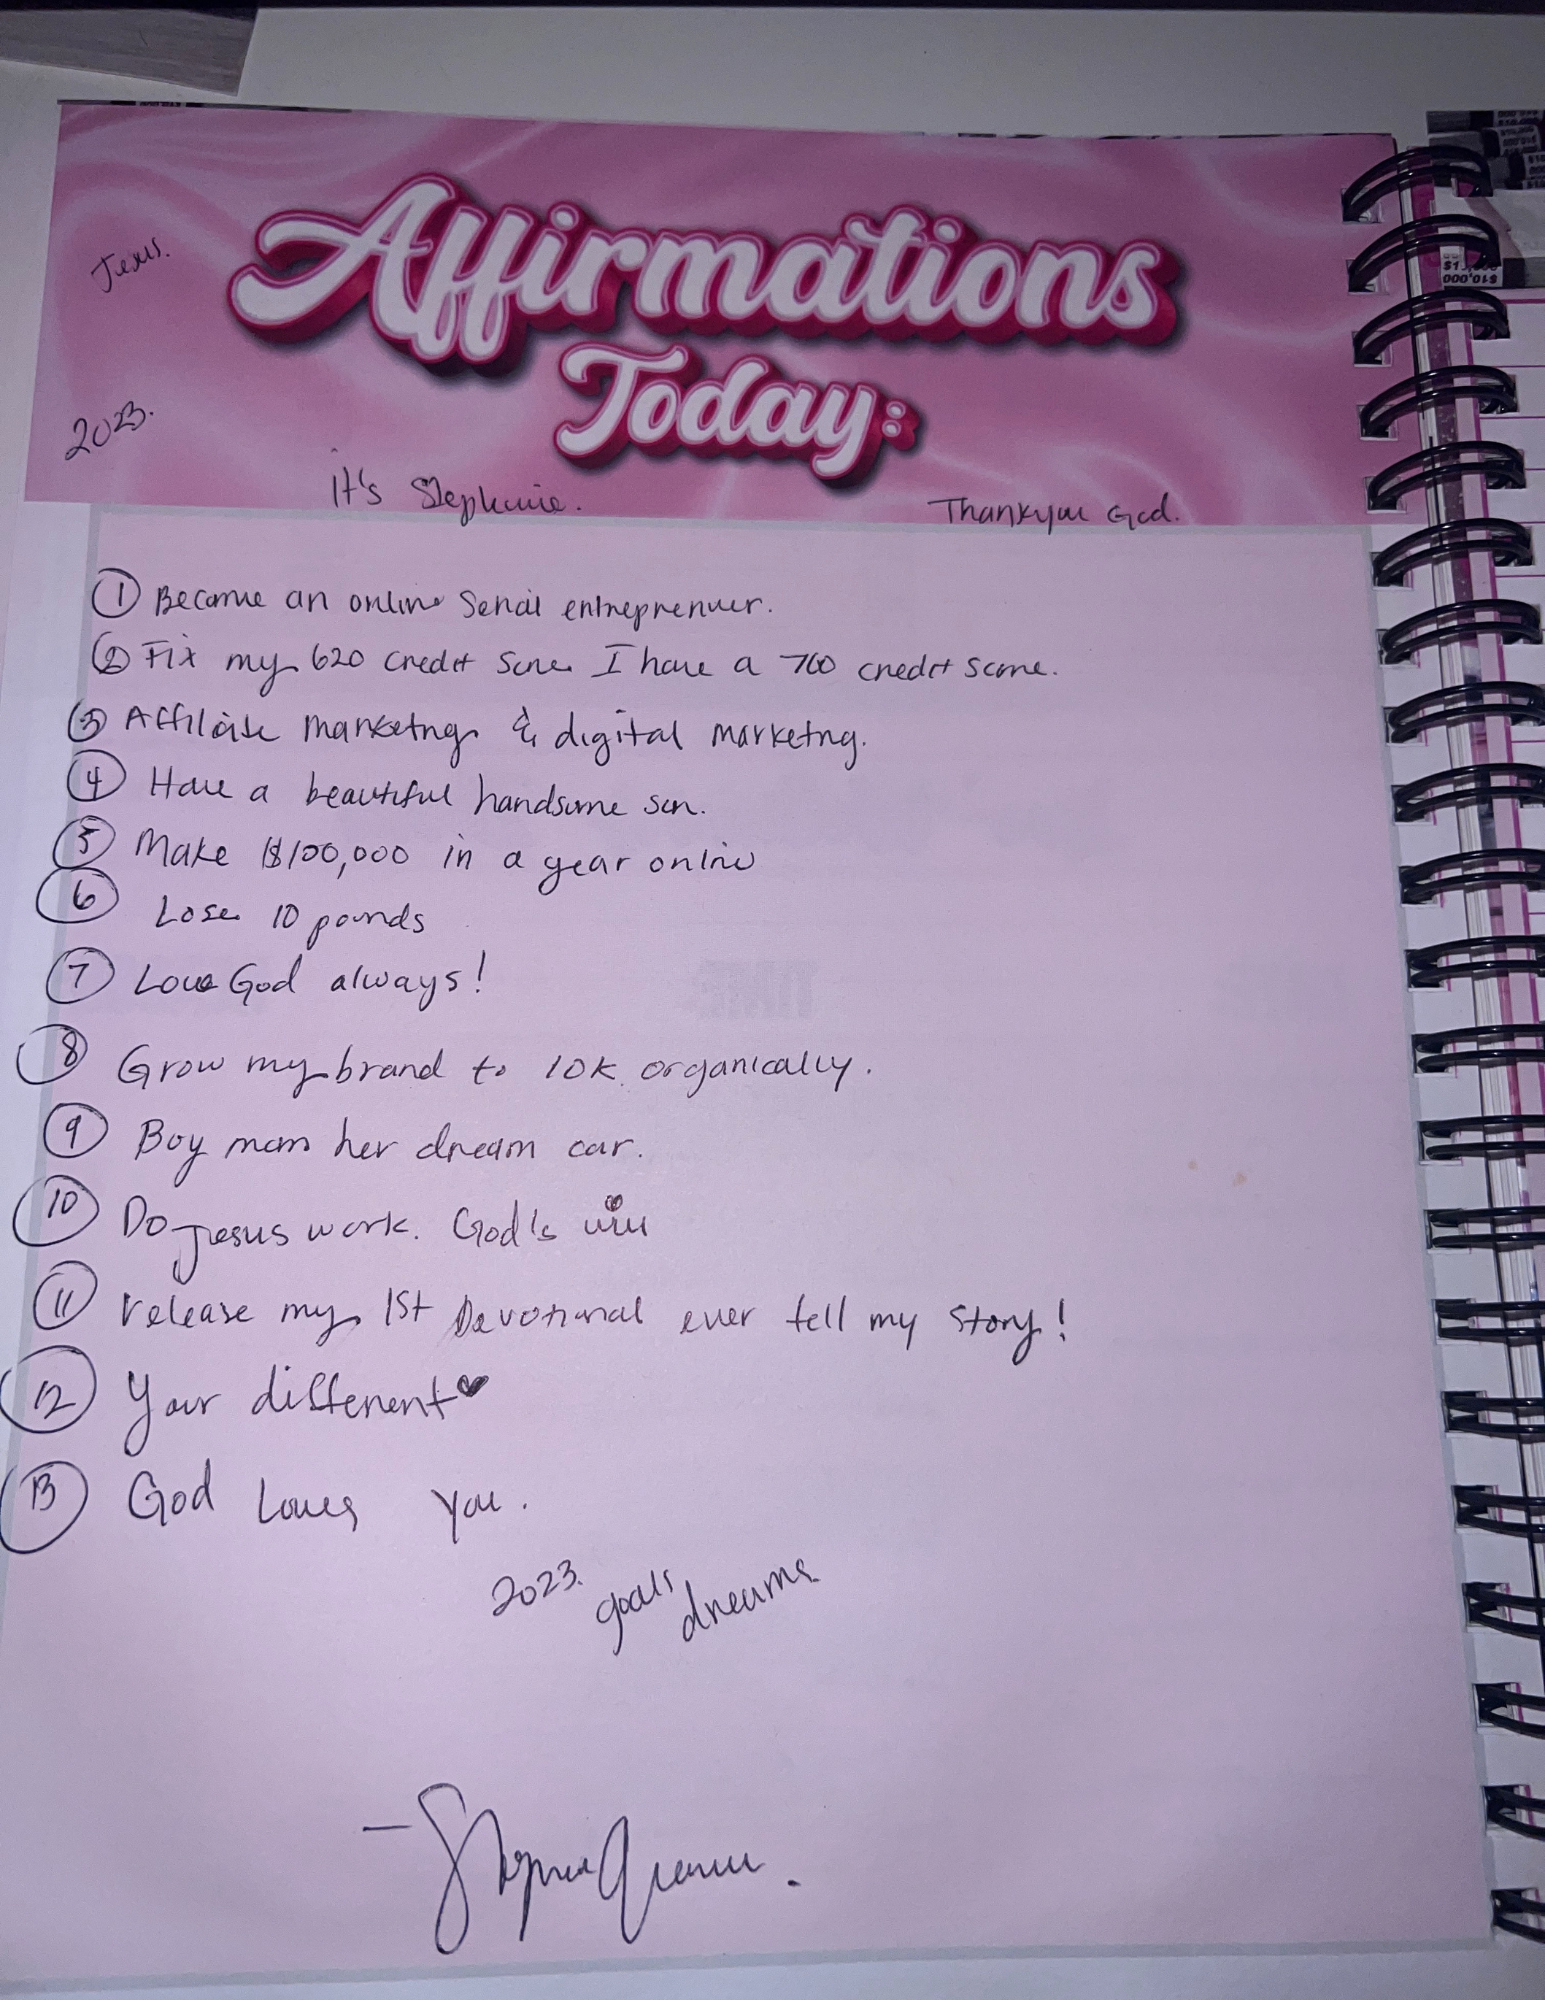 Jesus.
Affirmations
Today:
2023.
it's Stephanie.
Thankyou God.
① Become an online Serial entreprenuer.
② Fix my 620 credit score I have a 700 credit score.
③ Affiliate marketng & digital marketng.
④ Have a beautiful handsome son.
⑤ Make $100,000 in a year online
⑥ Lose 10 pounds
⑦ Love God always!
⑧ Grow my brand to 10K organically.
⑨ Boy mom her dream car.
⑩ Do Jesus work. God's will
⑪ release my 1st Devotional ever tell my story!
⑫ Your different ♥
⑬ God Loves you.
2023. goals dreams
$10,000